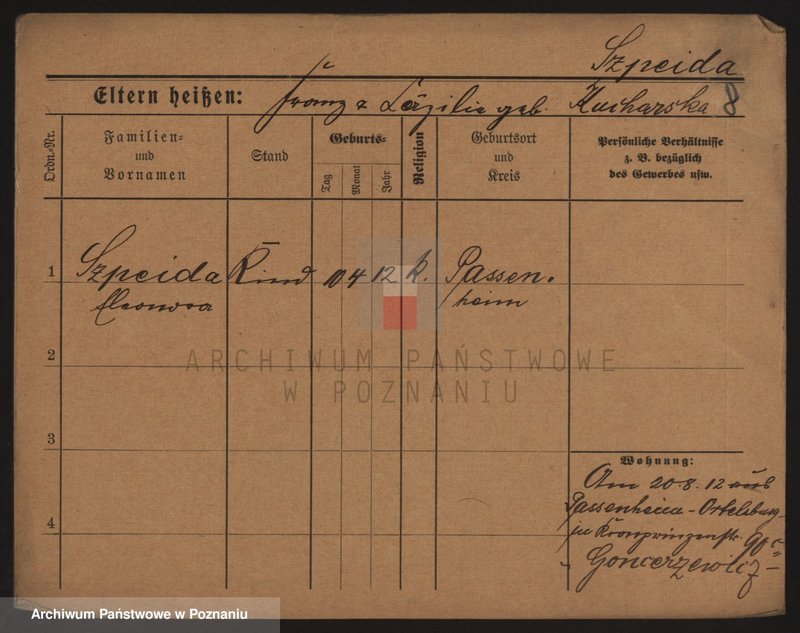 Szpeida
Eltern heißen: Franz & Cäzilie geb. Kucharska 8
Ordn.-Nr.
Familien-
und
Vornamen
Stand
Geburts-
Tag
Monat
Jahr
Religion
Geburtsort
und
Kreis
Persönliche Verhältnisse
z. B. bezüglich
des Gewerbes usw.
1 Szpeida Kind 10 4 12 k. Passen-
Eleonora heim
2
ARCHIWUM PAŃSTWOWE
W POZNANIU
3
Wohnung:
Am 20.8.12 aus
Passenheim-Ortelsburg
in Kronprinzenstr. 90
4
Goncerzewicz
Archiwum Państwowe w Poznaniu